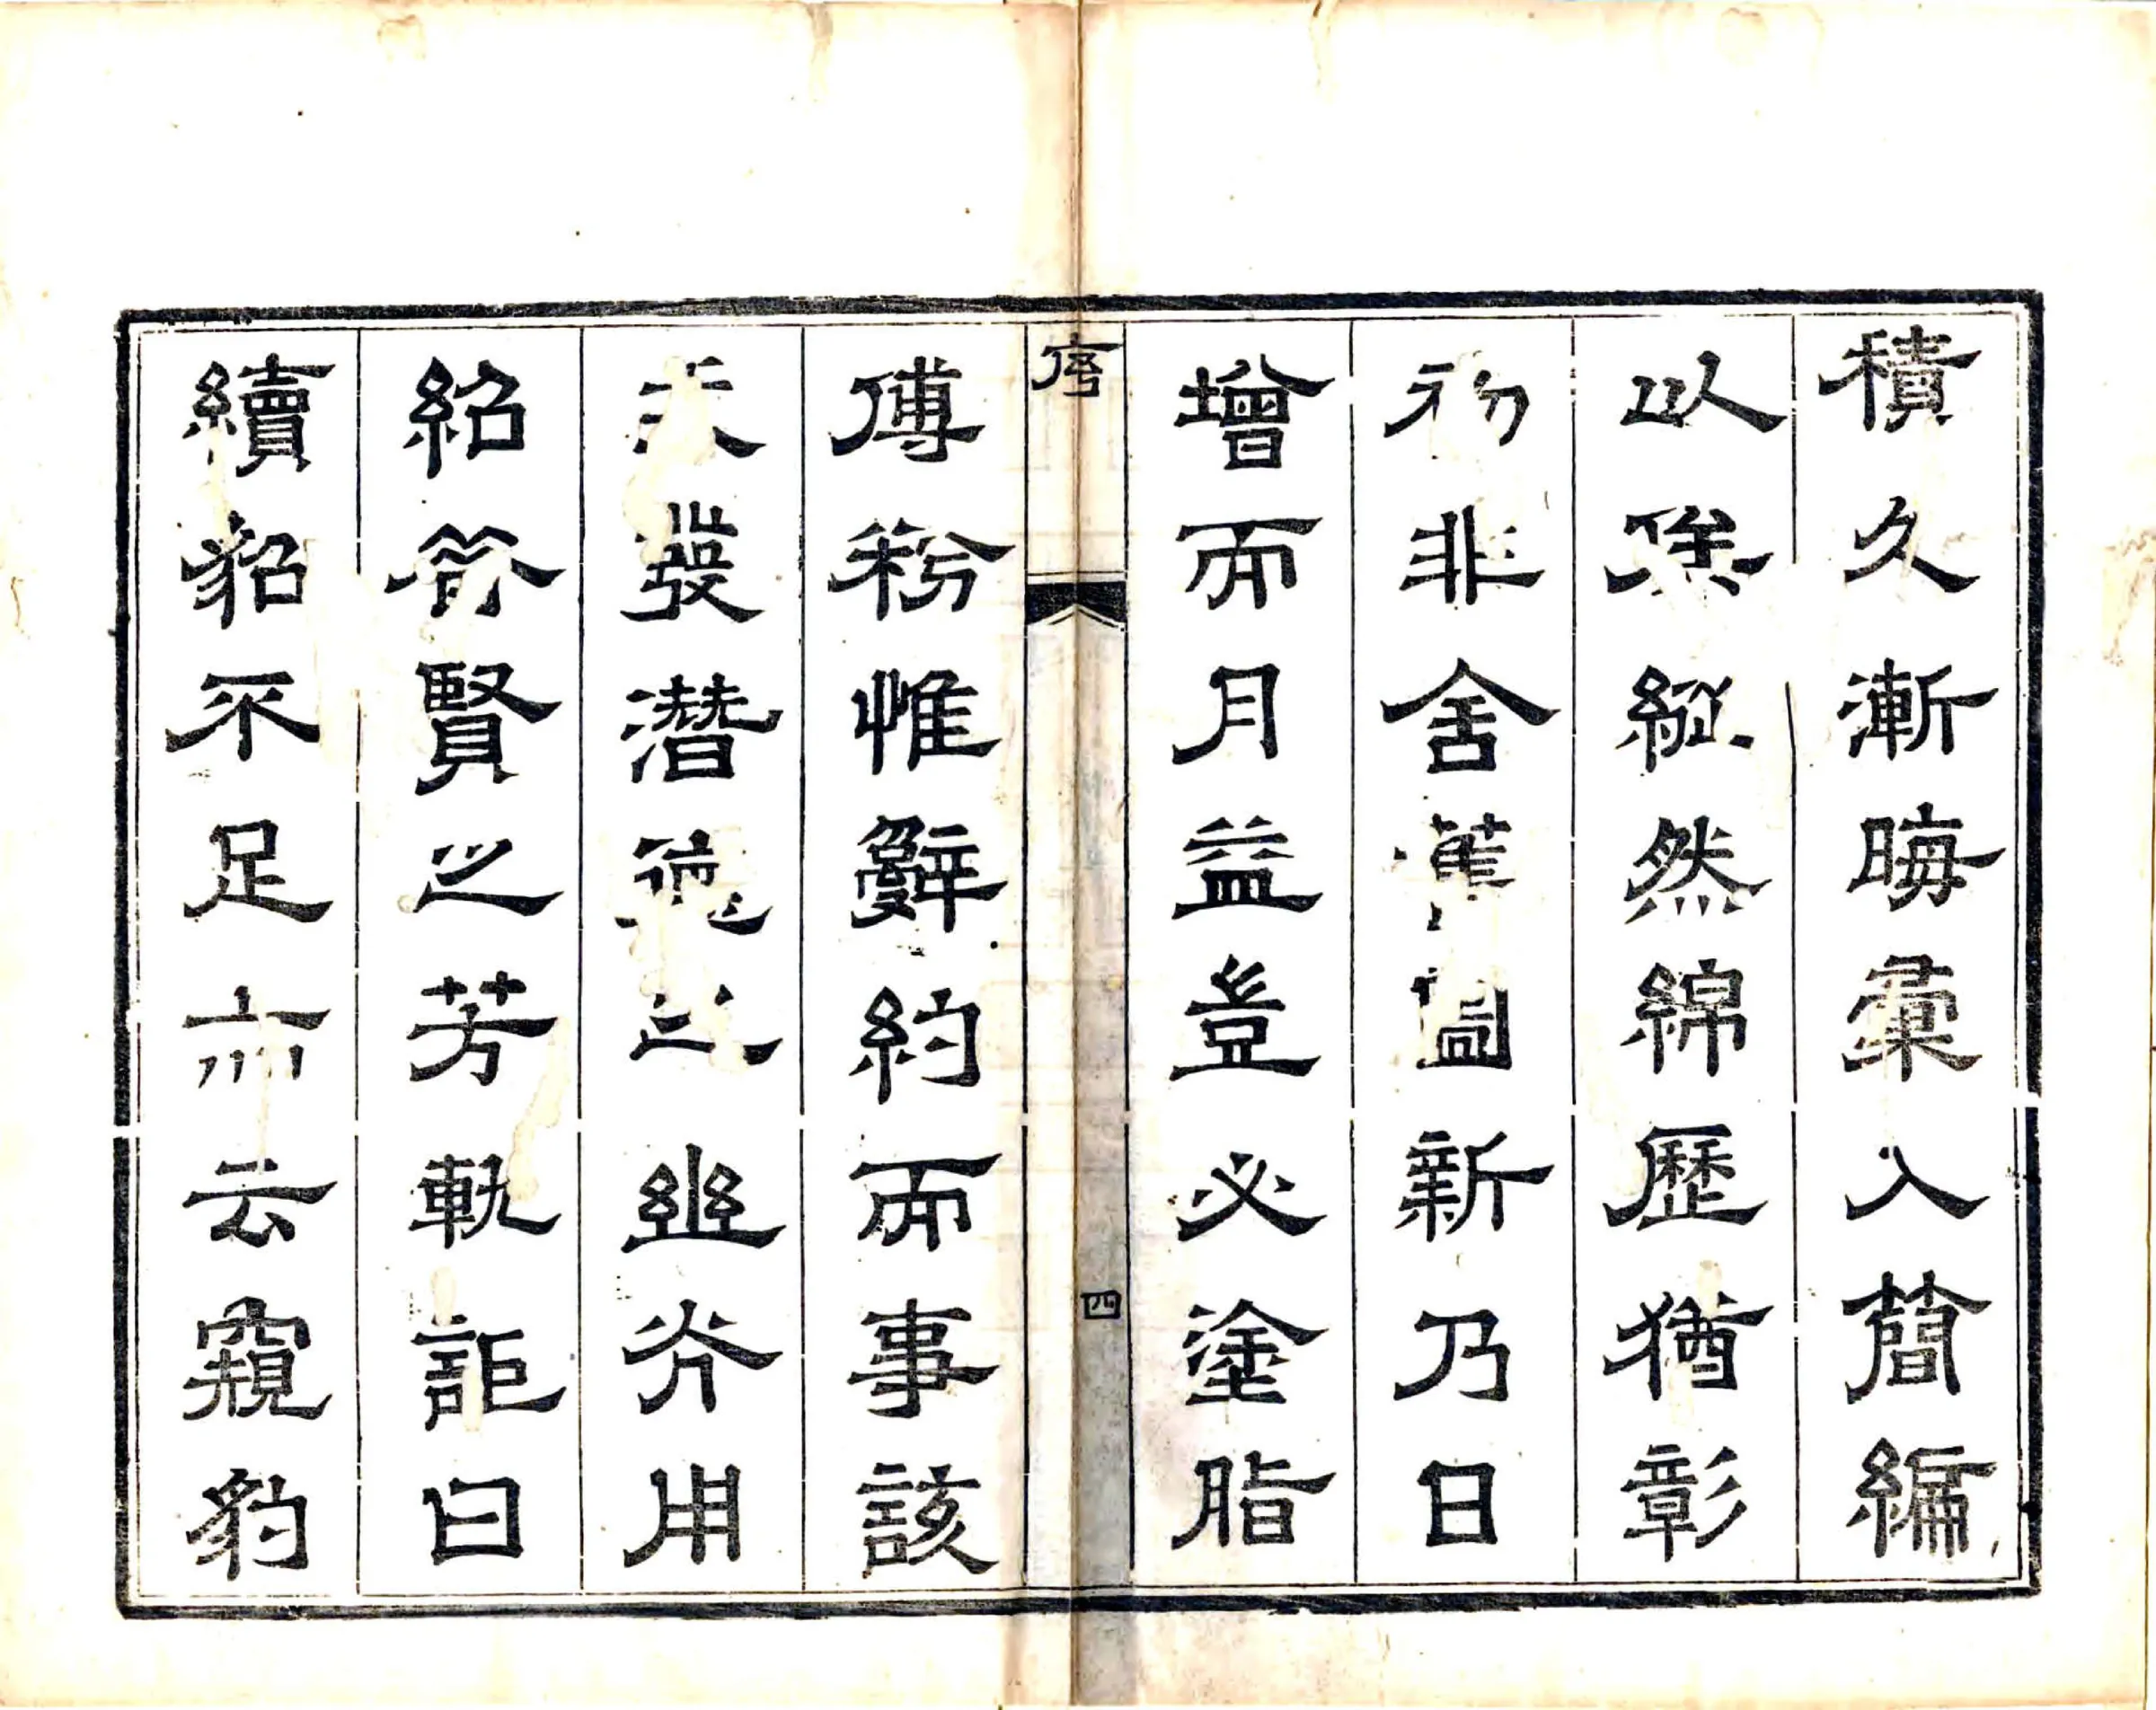 積久漸晦彙入簡編
以俟縱然綿歷猶彰
初非舍舊圖新乃日
增而月益豈必塗脂
序
四
傅粉惟辭約而事該
夫發潛德之幽光用
紹賢之芳軌詎曰
續貂不足亦云窺豹